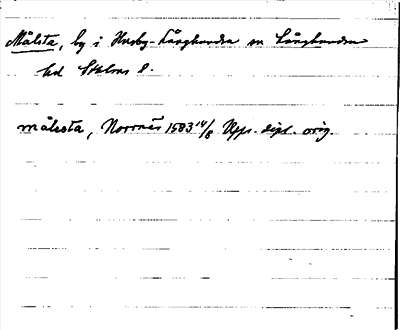 Målsta, by i Husby-Långhundra sn Långhundra
hd Sthlms l.
målesta, Norrnäs 1583 14/8 Upps. dipl. orig.